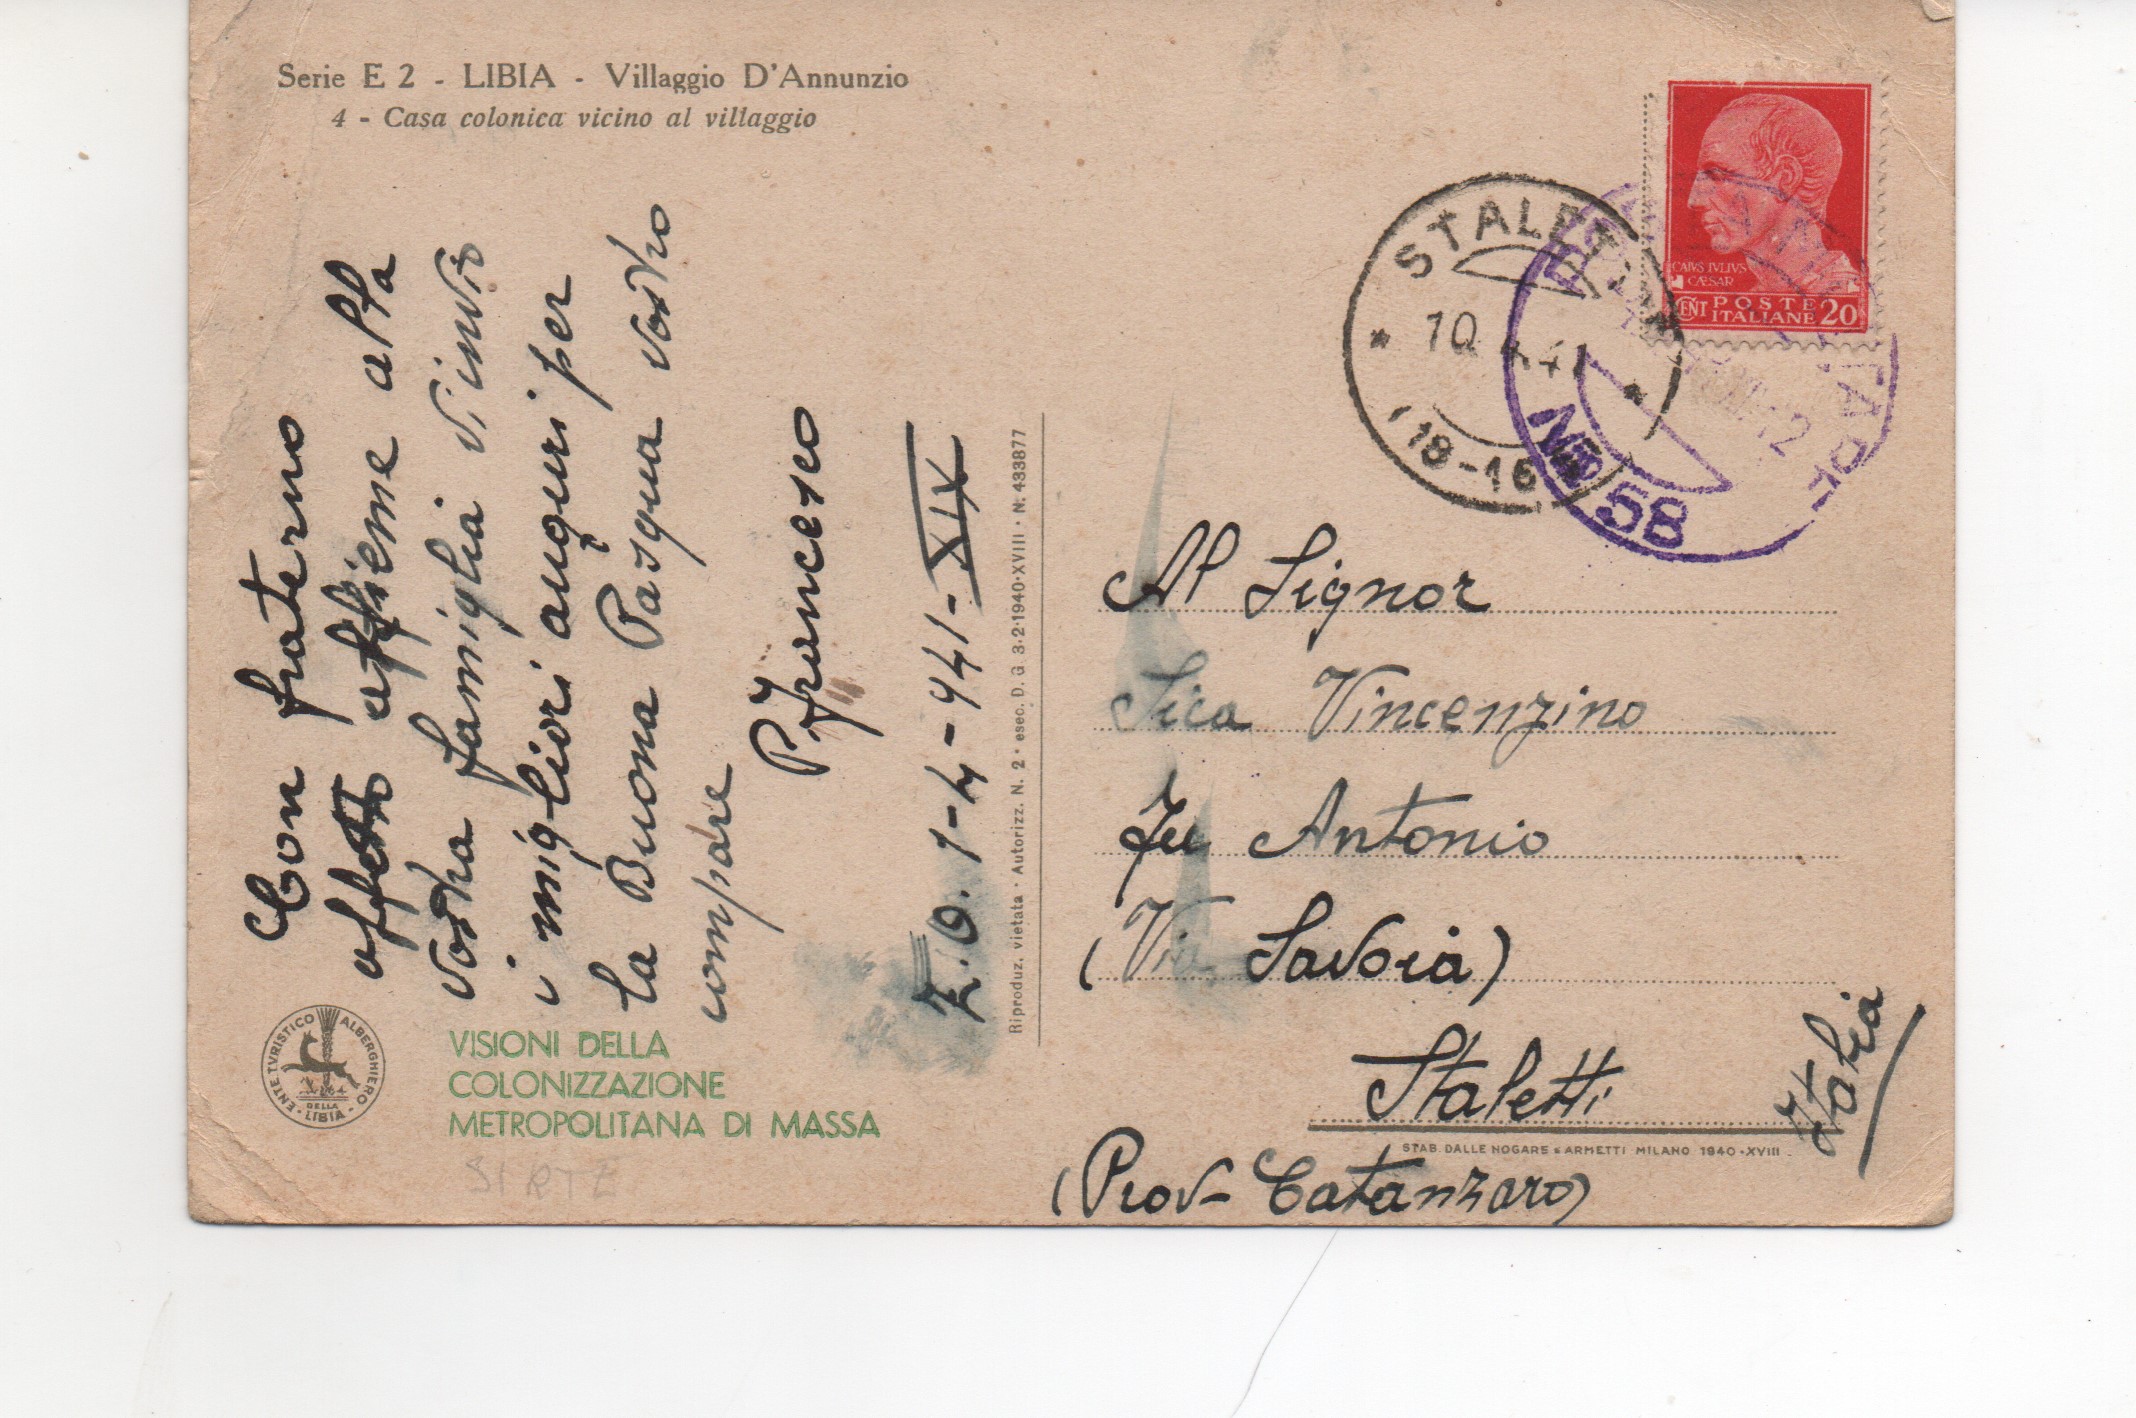 Serie E 2 - LIBIA - Villaggio D'Annunzio
4 - Casa colonica vicino al villaggio
Con fraterno
affetto assieme alla
vostra famiglia v'invio
i migliori auguri per
la Buona Pasqua vostro
compare
P. Francesco
Z.O. 1-4-941-XIX
ENTE TVRISTICO ALBERGHIERO
DELLA
LIBIA
VISIONI DELLA
COLONIZZAZIONE
METROPOLITANA DI MASSA
SIRTE
Riproduz. vietata · Autorizz. N. 2 · esec. D. G 3·2·1940·XVIII · N. 433877
CAIVS IVLIVS
CÆSAR
CENT POSTE ITALIANE 20
STALETTI
10 4 41
18-16
No 58
Al Signor
Sica Vincenzino
Fu Antonio
(Via Savoia)
Staletti
Italia
STAB. DALLE NOGARE E ARMETTI MILANO 1940·XVIII
(Prov- Catanzaro)